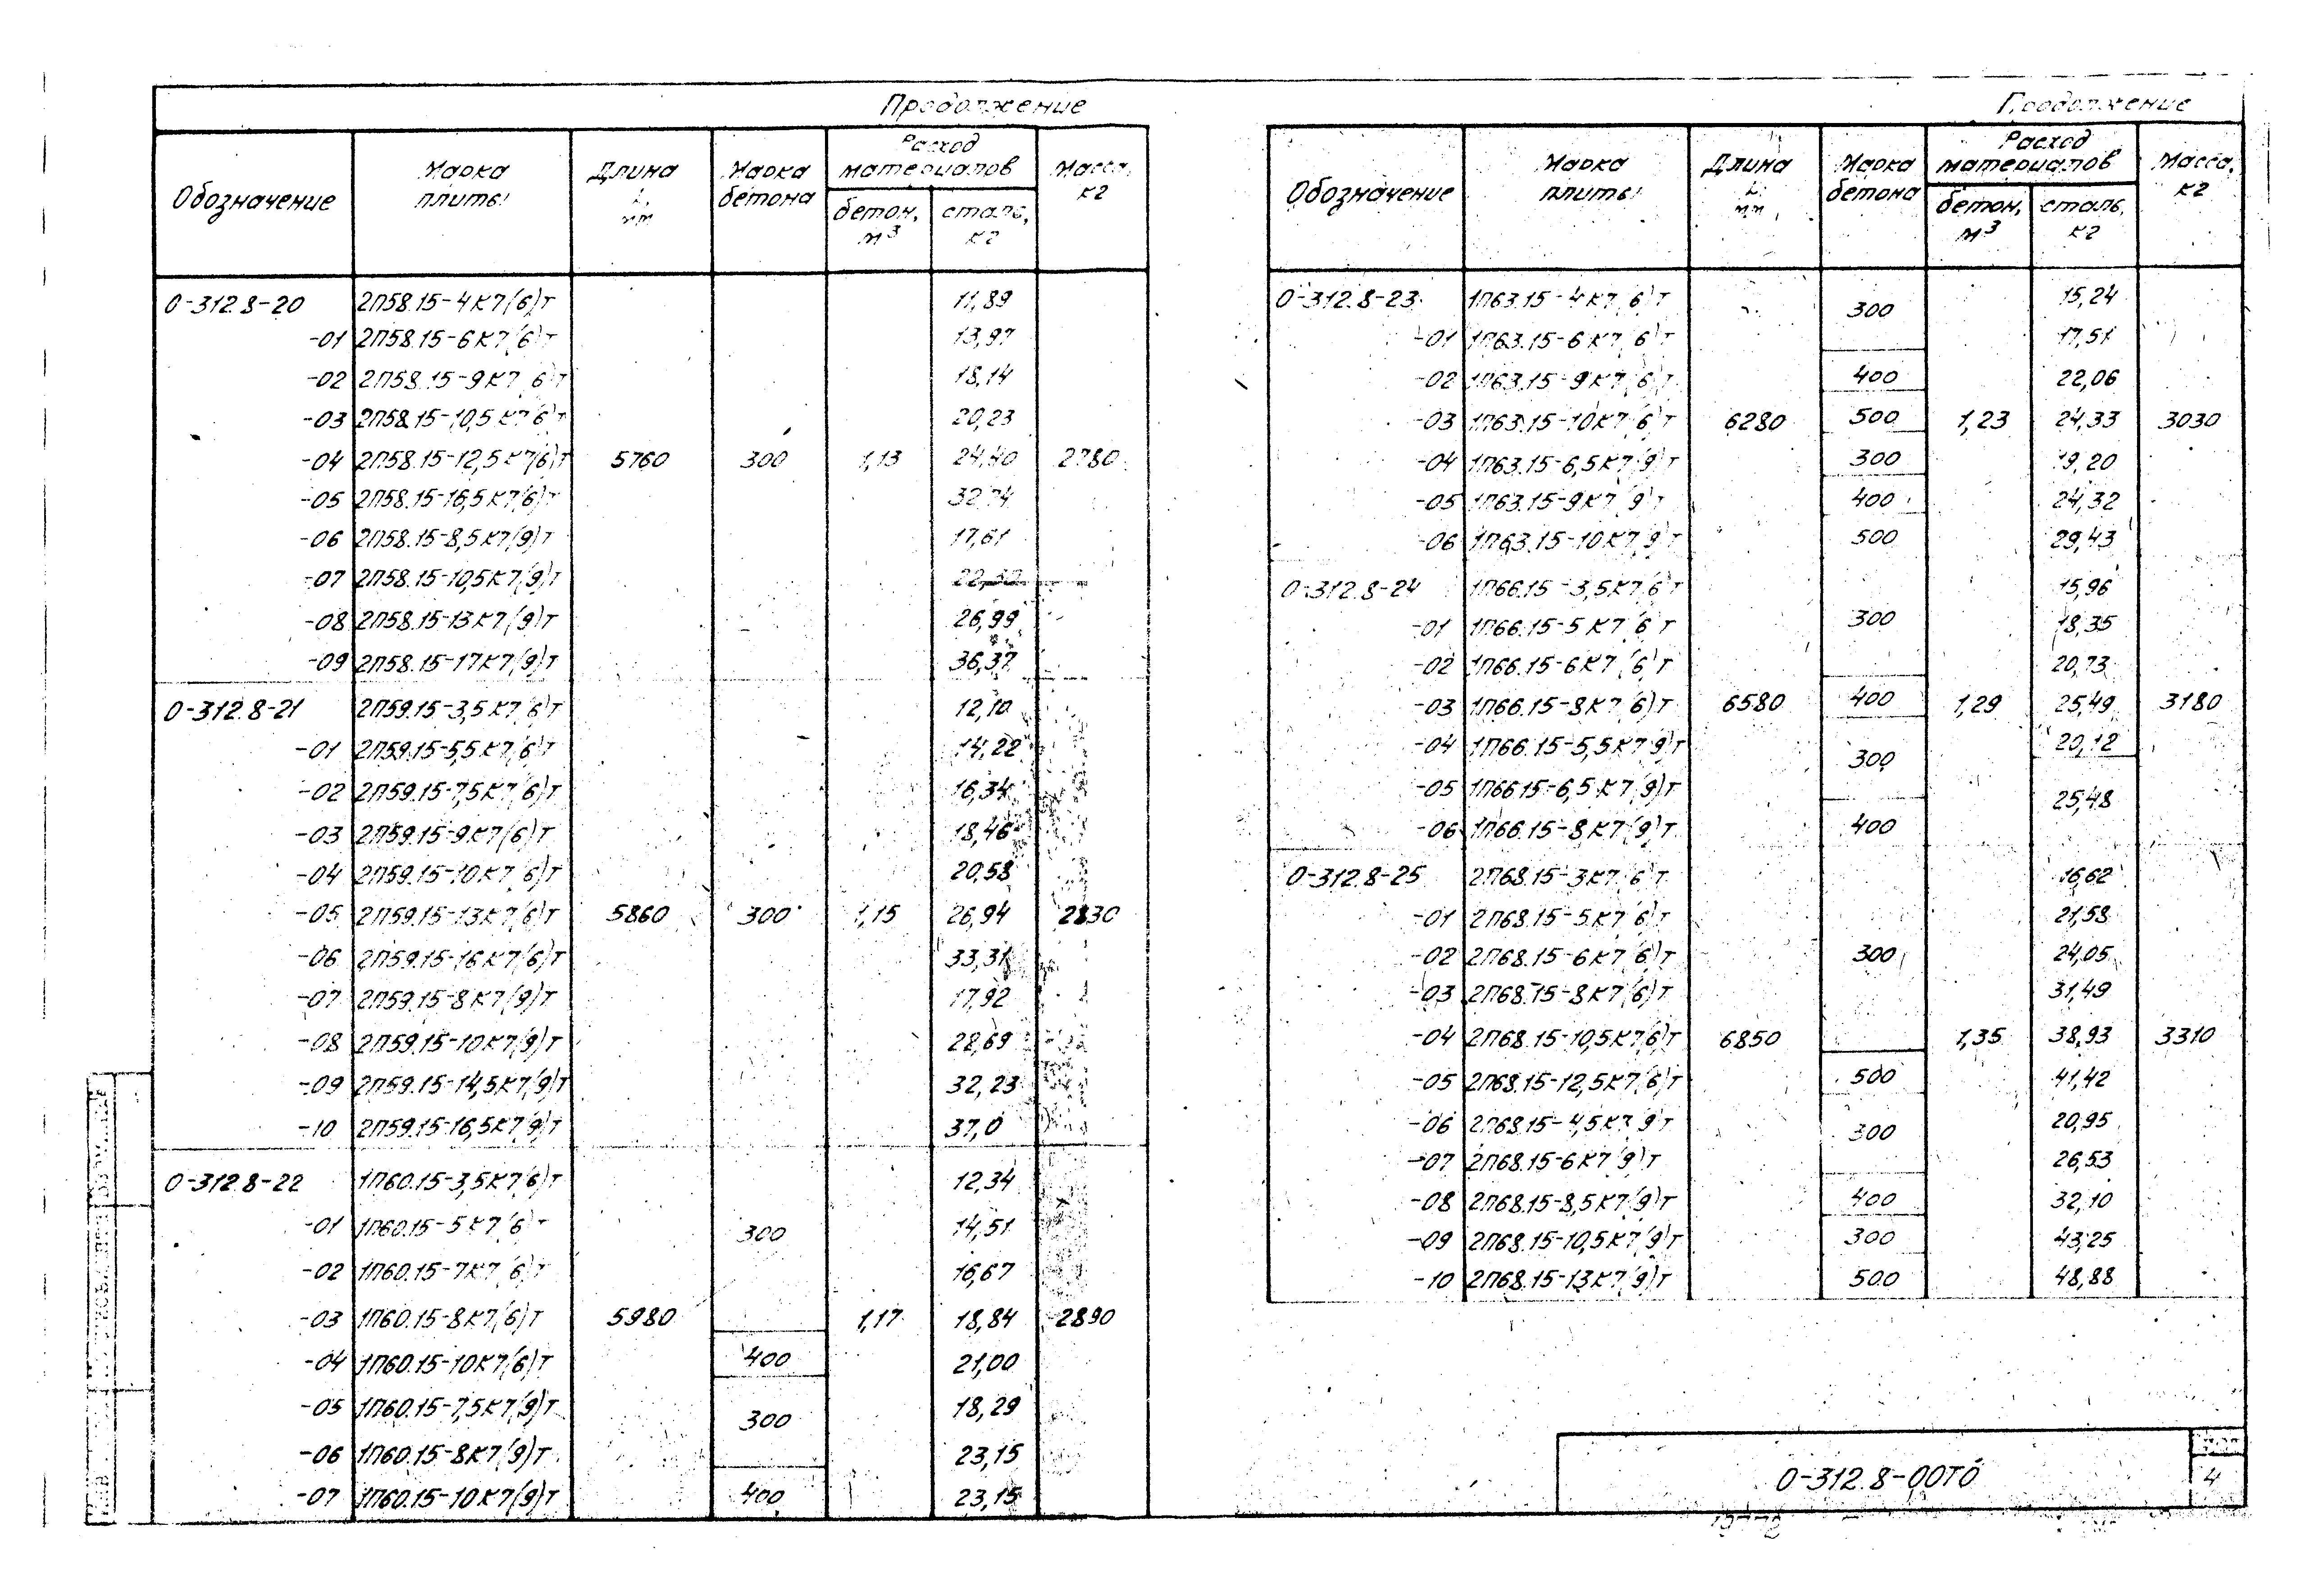 Продолжение
Обозначение Марка плиты Длина L, мм Марка бетона Расход материалов бетон, м³ сталь, кг Масса, кг
0-312.8-20 2П58.15-4К7(6)Т 11,89
-01 2П58.15-6К7(6)Т 13,97
-02 2П58.15-9К7(6)Т 18,14
-03 2П58.15-10,5К7(6)Т 20,23
-04 2П58.15-12,5К7(6)Т 5760 300 1,13 24,40 2780
-05 2П58.15-16,5К7(6)Т 32,74
-06 2П58.15-8,5К7(9)Т 17,61
-07 2П58.15-10,5К7(9)Т
-08 2П58.15-13К7(9)Т 26,99
-09 2П58.15-17К7(9)Т 36,37
0-312.8-21 2П59.15-3,5К7(6)Т 12,10
-01 2П59.15-5,5К7(6)Т 14,22
-02 2П59.15-7,5К7(6)Т 16,34
-03 2П59.15-9К7(6)Т 18,46
-04 2П59.15-10К7(6)Т 20,58
-05 2П59.15-13К7(6)Т 5860 300 1,15 26,94 2830
-06 2П59.15-16К7(6)Т 33,31
-07 2П59.15-8К7(9)Т 17,92
-08 2П59.15-10К7(9)Т 22,69
-09 2П59.15-14,5К7(9)Т 32,23
-10 2П59.15-16,5К7(9)Т 37,0
0-312.8-22 1П60.15-3,5К7(6)Т 12,34
-01 1П60.15-5К7(6)Т 300 14,51
-02 1П60.15-7К7(6)Т 16,67
-03 1П60.15-8К7(6)Т 5980 1,17 18,84 2890
-04 1П60.15-10К7(6)Т 400 21,00
-05 1П60.15-7,5К7(9)Т 300 18,29
-06 1П60.15-8К7(9)Т 23,15
-07 1П60.15-10К7(9)Т 400 23,15
Продолжение
Обозначение Марка плиты Длина L, мм Марка бетона Расход материалов бетон, м³ сталь, кг Масса, кг
0-312.8-23 1П63.15-4К7(6)Т 300 15,24
-01 1П63.15-6К7(6)Т 17,51
-02 1П63.15-9К7(6)Т 400 22,06
-03 1П63.15-10К7(6)Т 6280 500 1,23 24,33 3030
-04 1П63.15-6,5К7(9)Т 300 19,20
-05 1П63.15-9К7(9)Т 400 24,32
-06 1П63.15-10К7(9)Т 500 29,43
0-312.8-24 1П66.15-3,5К7(6)Т 15,96
-01 1П66.15-5К7(6)Т 300 18,35
-02 1П66.15-6К7(6)Т 20,73
-03 1П66.15-8К7(6)Т 6580 400 1,29 25,49 3180
-04 1П66.15-5,5К7(9)Т 300 20,12
-05 1П66.15-6,5К7(9)Т 25,48
-06 1П66.15-8К7(9)Т 400
0-312.8-25 2П68.15-3К7(6)Т 16,62
-01 2П68.15-5К7(6)Т 21,58
-02 2П68.15-6К7(6)Т 300 24,05
-03 2П68.15-8К7(6)Т 31,49
-04 2П68.15-10,5К7(6)Т 6850 1,35 38,93 3310
-05 2П68.15-12,5К7(6)Т 500 41,42
-06 2П68.15-4,5К7(9)Т 300 20,95
-07 2П68.15-6К7(9)Т 26,53
-08 2П68.15-8,5К7(9)Т 400 32,10
-09 2П68.15-10,5К7(9)Т 300 43,25
-10 2П68.15-13К7(9)Т 500 48,88
0-312.8-00ТО
4